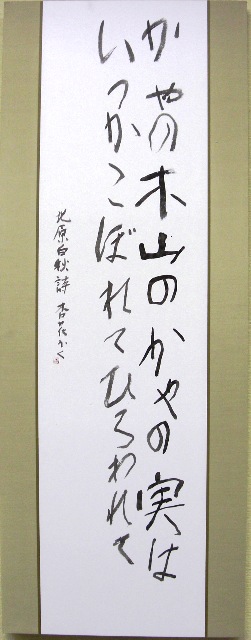 かやの木山のかやの実は
いつかこぼれてひろわれて
北原白秋詩 杏花かく